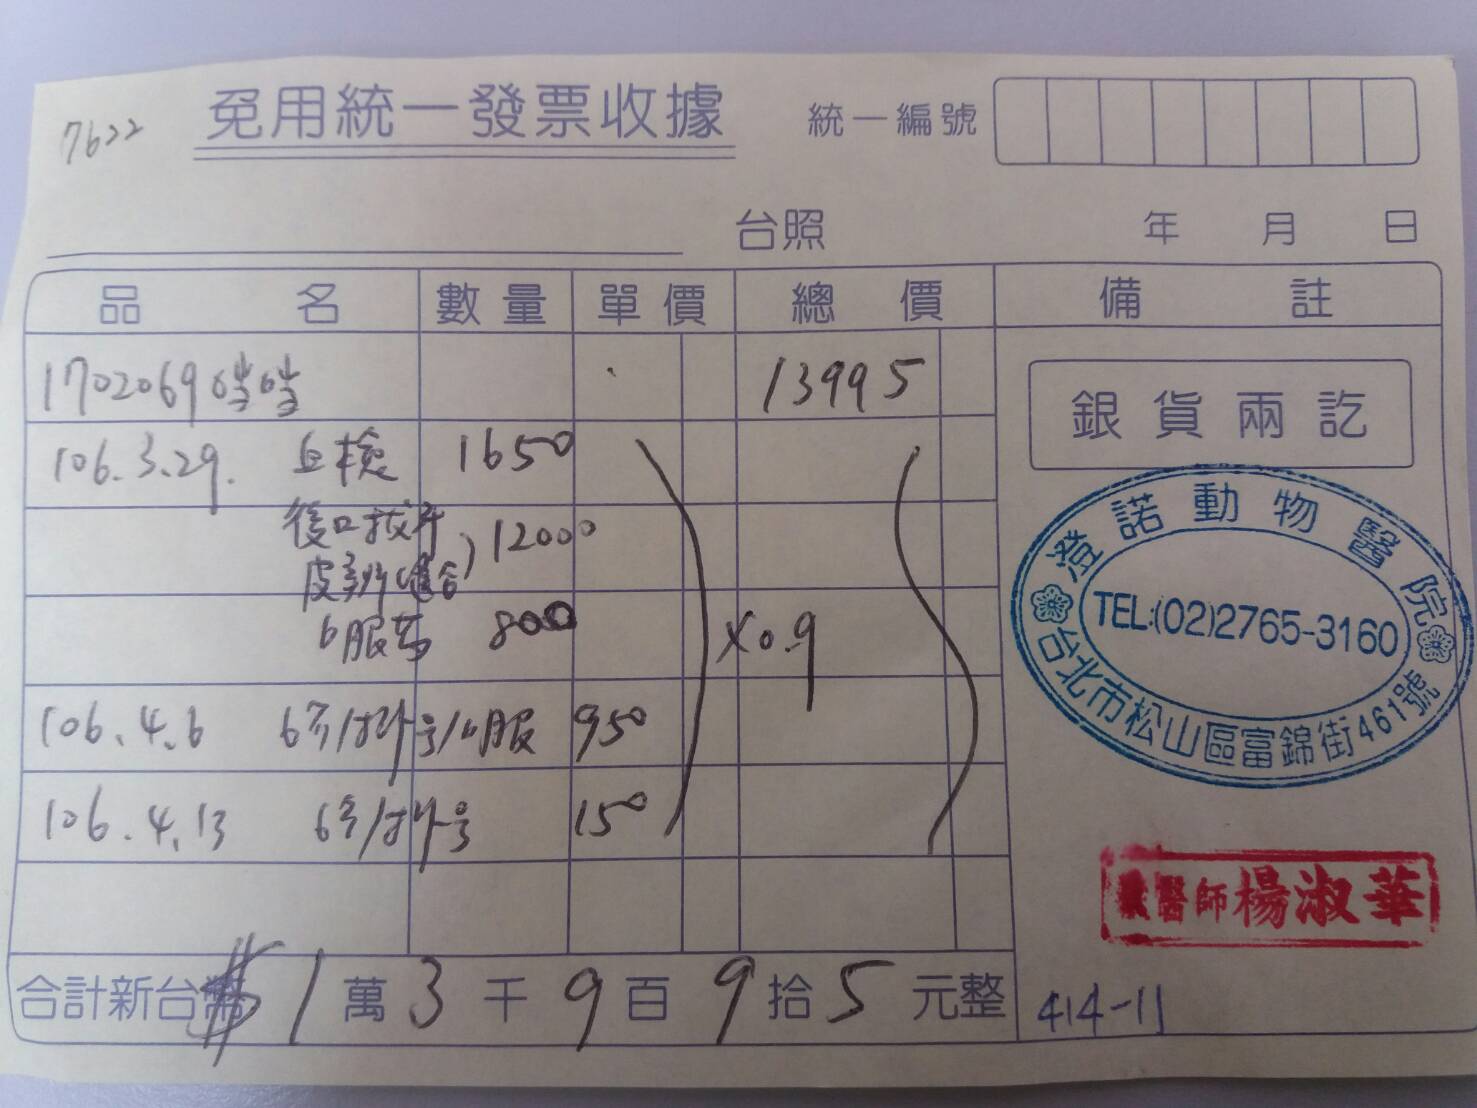 7622
免用統一發票收據
統一編號
台照
年 月 日
品名 數量 單價 總價 備註
1702069 噹噹 13995
銀貨兩訖
106.3.29. 血檢 1650
後口拔牙
皮多卵(縫合) 12000
口服药 800
×0.9
106.4.6 950
106.4.13 150
澄諾動物醫院
TEL:(02)2765-3160
台北市松山區富錦街461號
獸醫師楊淑華
合計新台幣 $ 1 萬 3 千 9 百 9 拾 5 元整
414-11